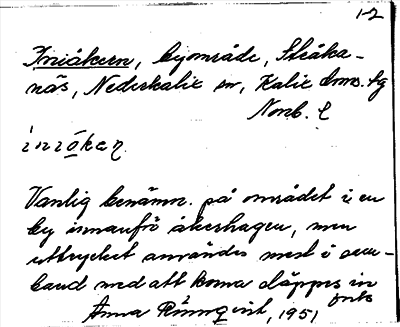 1-2
Iniåkern, byområde, Stråka-
näs, Nederkalix sn, Kalix doms. tg
Norrb. l
inıåkeṇ
Vanlig benämn. på området i en
by innanför åkerhagen, men
uttrycket användes mest i sam-
band med att korna släpptes in
dit
Anna Rönnqvist, 1951